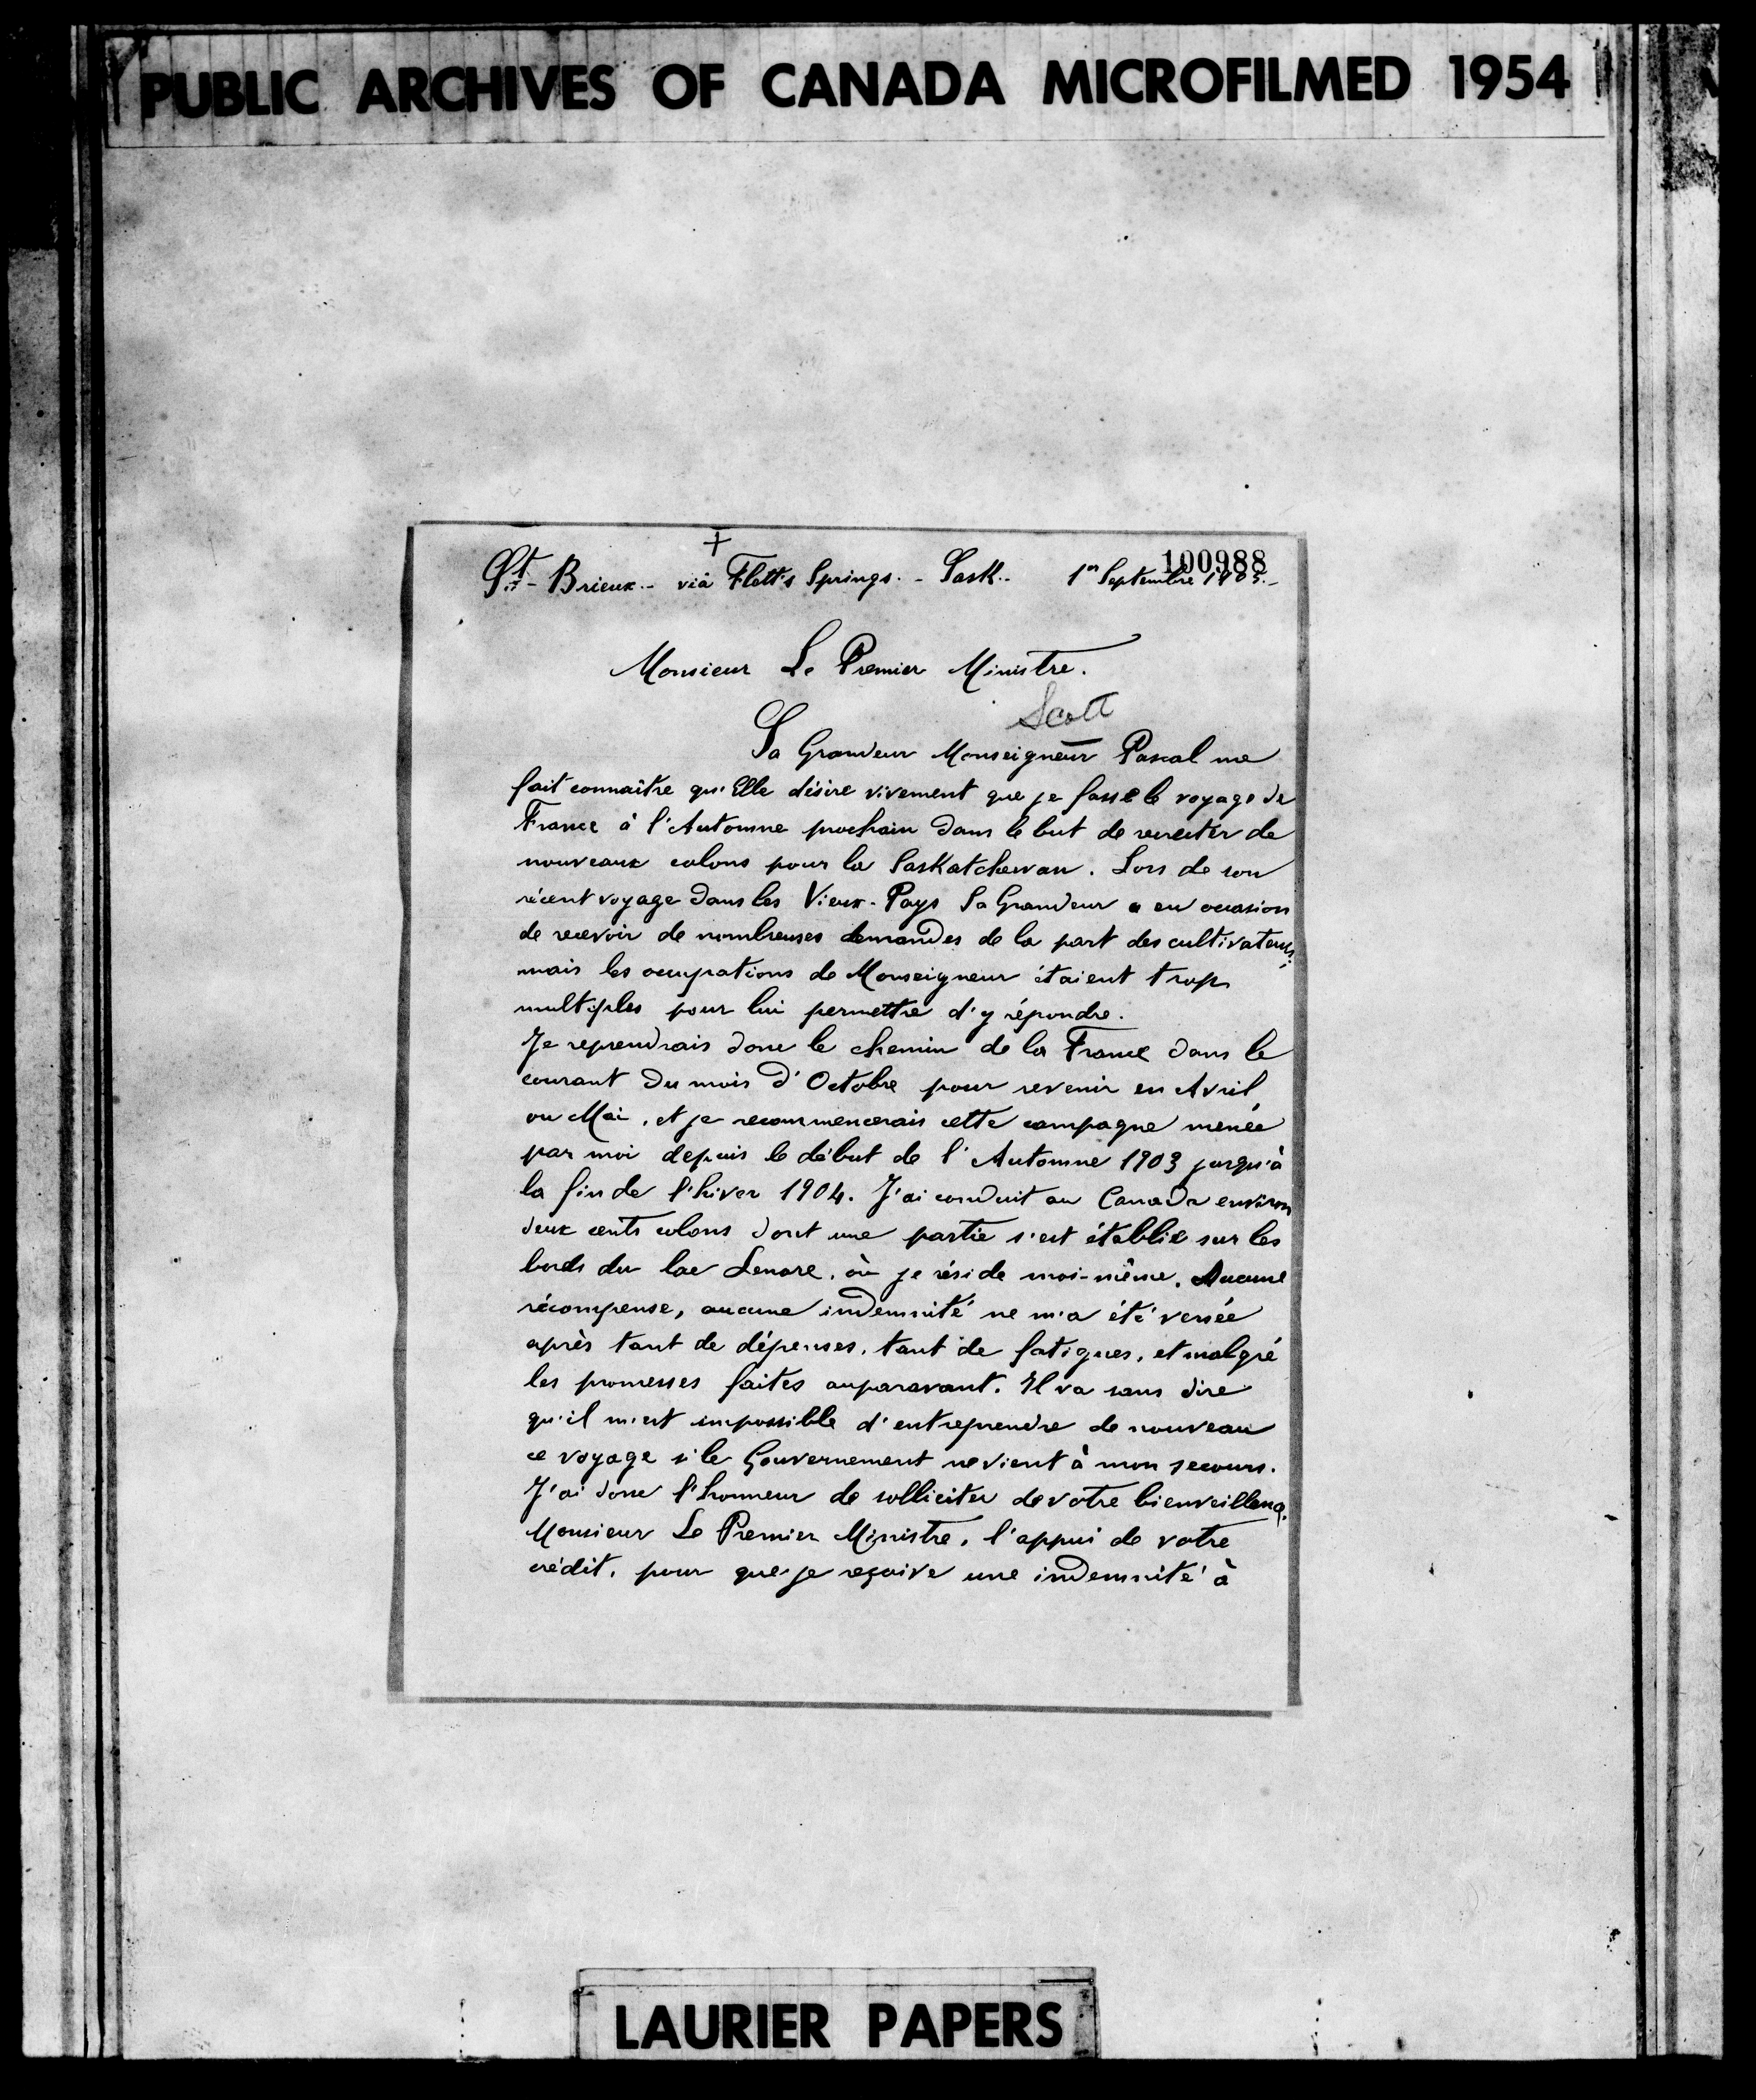 PUBLIC ARCHIVES OF CANADA MICROFILMED 1954
+
100988
St- Brieux.- viâ Flett's Springs.- Sask.- 1er Septembre 1905.-
Monsieur Le Premier Ministre.
Scott
Sa Grandeur Monseigneur Pascal me
fait connaître qu'Elle désire vivement que je fasse le voyage de
France à l'Automne prochain dans le but de recruter de
nouveaux colons pour la Saskatchewan. Lors de son
récent voyage dans les Vieux-Pays Sa Grandeur a eu occasion
de recevoir de nombreuses demandes de la part des cultivateurs;
mais les occupations de Monseigneur étaient trop
multiples pour lui permettre d'y répondre.
Je reprendrais donc le chemin de la France dans le
courant du mois d'Octobre pour revenir en Avril,
ou Mai, et je recommencerais cette campagne menée
par moi depuis le début de l'Automne 1903 jusqu'à
la fin de l'hiver 1904. J'ai conduit au Canada environ
deux cents colons dont une partie s'est établie sur les
bords du lac Lenore, où je réside moi-même. Aucune
récompense, aucune indemnité ne m'a été versée
après tant de dépenses, tant de fatigues, et malgré
les promesses faites auparavant. Il va sans dire
qu'il m'est impossible d'entreprendre de nouveau
ce voyage si le Gouvernement ne vient à mon secours.
J'ai donc l'honneur de solliciter de votre bienveillance,
Monsieur Le Premier Ministre, l'appui de votre
crédit, pour que je reçoive une indemnité à
LAURIER PAPERS